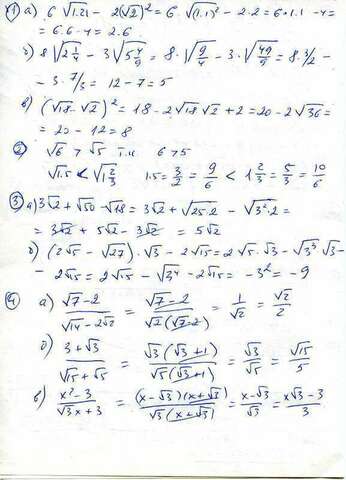 1) а) 6√1.21 - 2(√2)² = 6√(1.1)² - 2·2 = 6·1.1 - 4 =
= 6.6 - 4 = 2.6
б) 8√2 1/4 - 3√5 4/9 = 8·√9/4 - 3·√49/9 = 8·3/2 -
- 3·7/3 = 12 - 7 = 5
в) (√18 - √2)² = 18 - 2√18√2 + 2 = 20 - 2√36 =
= 20 - 12 = 8
2) √6 > √5 т.к 6 > 5
√1.5 < √1 2/3 1.5 = 3/2 = 9/6 < 1 2/3 = 5/3 = 10/6
3) а) 3√2 + √50 - √18 = 3√2 + √25·2 - √3²·2 =
= 3√2 + 5√2 - 3√2 = 5√2
б) (2√5 - √27)·√3 - 2√15 = 2√5·√3 - √3³√3 -
- 2√15 = 2√15 - √3⁴ - 2√15 = -3² = -9
4) а) √7-2 / √14-2√2 = √7-2 / √2(√7-2) = 1/√2 = √2/2
б) 3+√3 / √15+√5 = √3(√3+1) / √5(√3+1) = √3/√5 = √15/5
в) x²-3 / √3x+3 = (x-√3)(x+√3) / √3(x+√3) = x-√3 / √3 = x√3-3 / 3